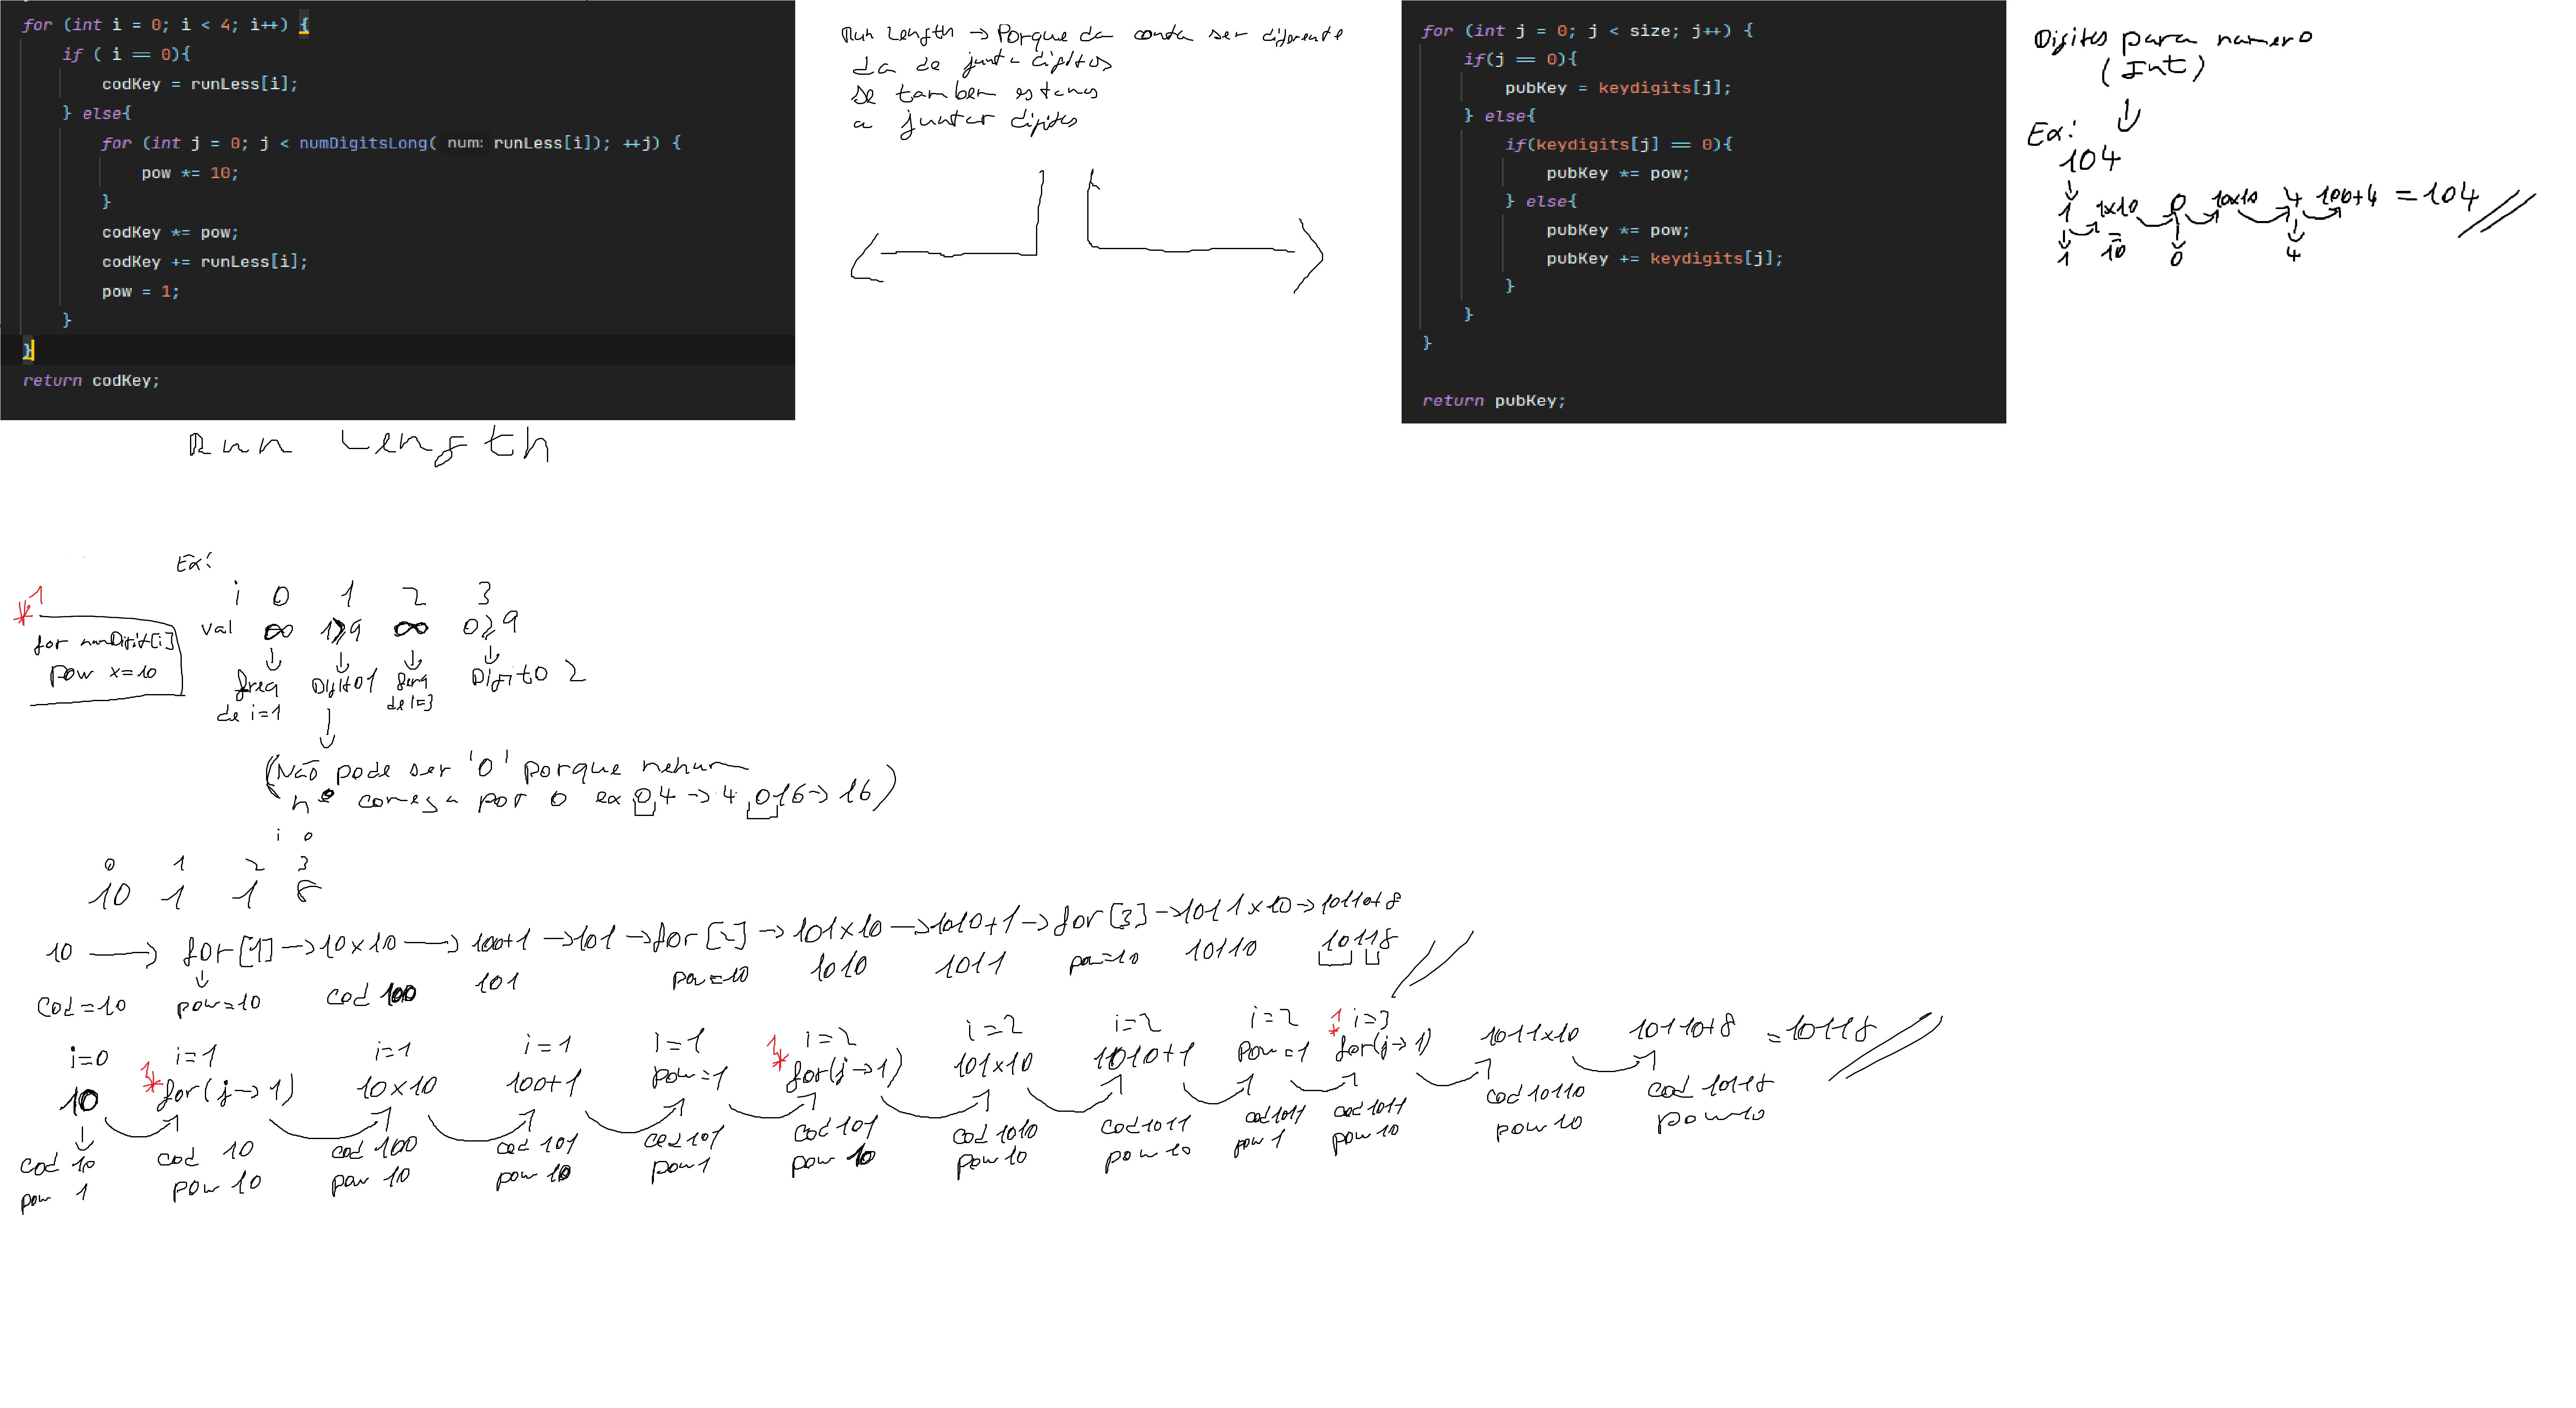 for (int i = 0; i < 4; i++) {
if ( i == 0){
codKey = runLess[i];
} else{
for (int j = 0; j < numDigitsLong( num: runLess[i]); ++j) {
pow *= 10;
}
codKey *= pow;
codKey += runLess[i];
pow = 1;
}
}
return codKey;
Run Length
Run Length → Porque da conta ser diferente
da de junta digitos
se tambem estamos
a juntar digitos
for (int j = 0; j < size; j++) {
if(j == 0){
pubKey = keydigits[j];
} else{
if(keydigits[j] == 0){
pubKey *= pow;
} else{
pubKey *= pow;
pubKey += keydigits[j];
}
}
}
return pubKey;
Digitos para numero
(Int)
Ex:
104
1 1x10 0 10x10 4 100+4 = 104
1 = 10 0 4
Ex:
i 0 1 2 3
*1
for numDigit[i]
pow x=10
val ∞ 1≥9 ∞ 0≥9
freq Digito1 freq Digito 2
de i=1 de i=3
(Não pode ser '0' porque nehum
nº começa por 0 ex 0,4 → 4, 016 → 16)
i 0
0 1 2 3
10 1 1 8
10 → for[1] → 10x10 → 100+1 → 101 → for[2] → 101x10 → 1010+1 → for[3] → 1011x10 → 10110+8
cod=10 pow=10 cod 100 101 pow=10 1010 1011 pow=10 10110 10118
i=0 i=1 i=1 i=1 i=1 i=2 i=2 i=2 i=2 i=3
10 *1 for(j→1) 10x10 100+1 pow=1 *1 for(j→1) 101x10 1010+1 pow=1 *1 for(j→1) 1011x10 10110+8 = 10118
cod 10 cod 10 cod 100 cod 101 cod 101 cod 101 cod 1010 cod 1011 cod 1011 cod 1011 cod 10110 cod 10118
pow 1 pow 10 pow 10 pow 10 pow 1 pow 10 pow 10 pow 10 pow 1 pow 10 pow 10 pow 10